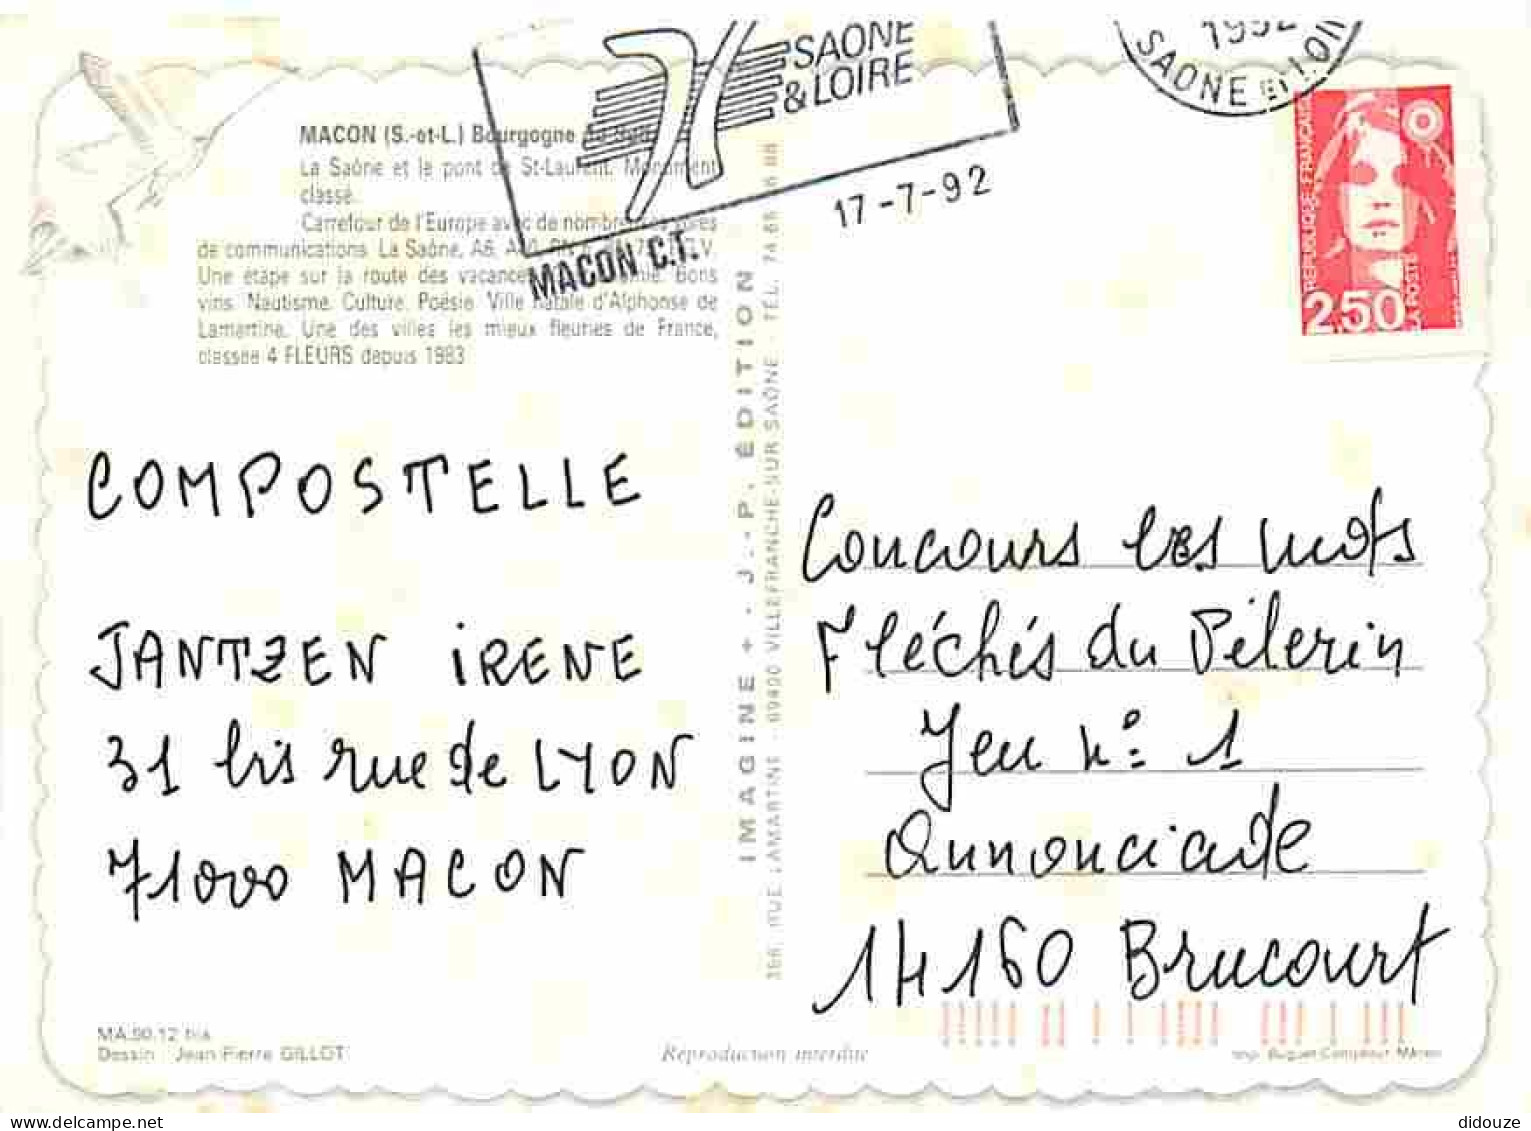 SAONE
& LOIRE
1992
SAONE ET LOIRE
17-7-92
MACON C.T.
REPUBLIQUE FRANÇAISE
2,50
LA POSTE
MACON (S.-et-L.) Bourgogne du Sud
La Saône et le pont de St-Laurent. Monument
classé.
Carrefour de l'Europe avec de nombreuses voies
de communications. La Saône, A6,
Une étape sur la route des vacances. Bons
vins. Nautisme. Culture. Poésie. Ville natale d'Alphonse de
Lamartine. Une des villes les mieux fleuries de France,
classée 4 FLEURS depuis 1983
COMPOSTELLE
JANTZEN IRENE
31 bis rue de LYON
71000 MACON
IMAGINE + - J.-P. ÉDITION
RUE LAMARTINE - 69400 VILLEFRANCHE-SUR-SAÔNE - TÉL. 74
Concours les mots
Fléchés du Pèlerin
Jeu n° 1
Annonciade
14160 Brucourt
MA.90.12 bis
Dessin : Jean-Pierre GILLOT
Reproduction interdite
Imp. Buguet-Comptour Mâcon
didouze